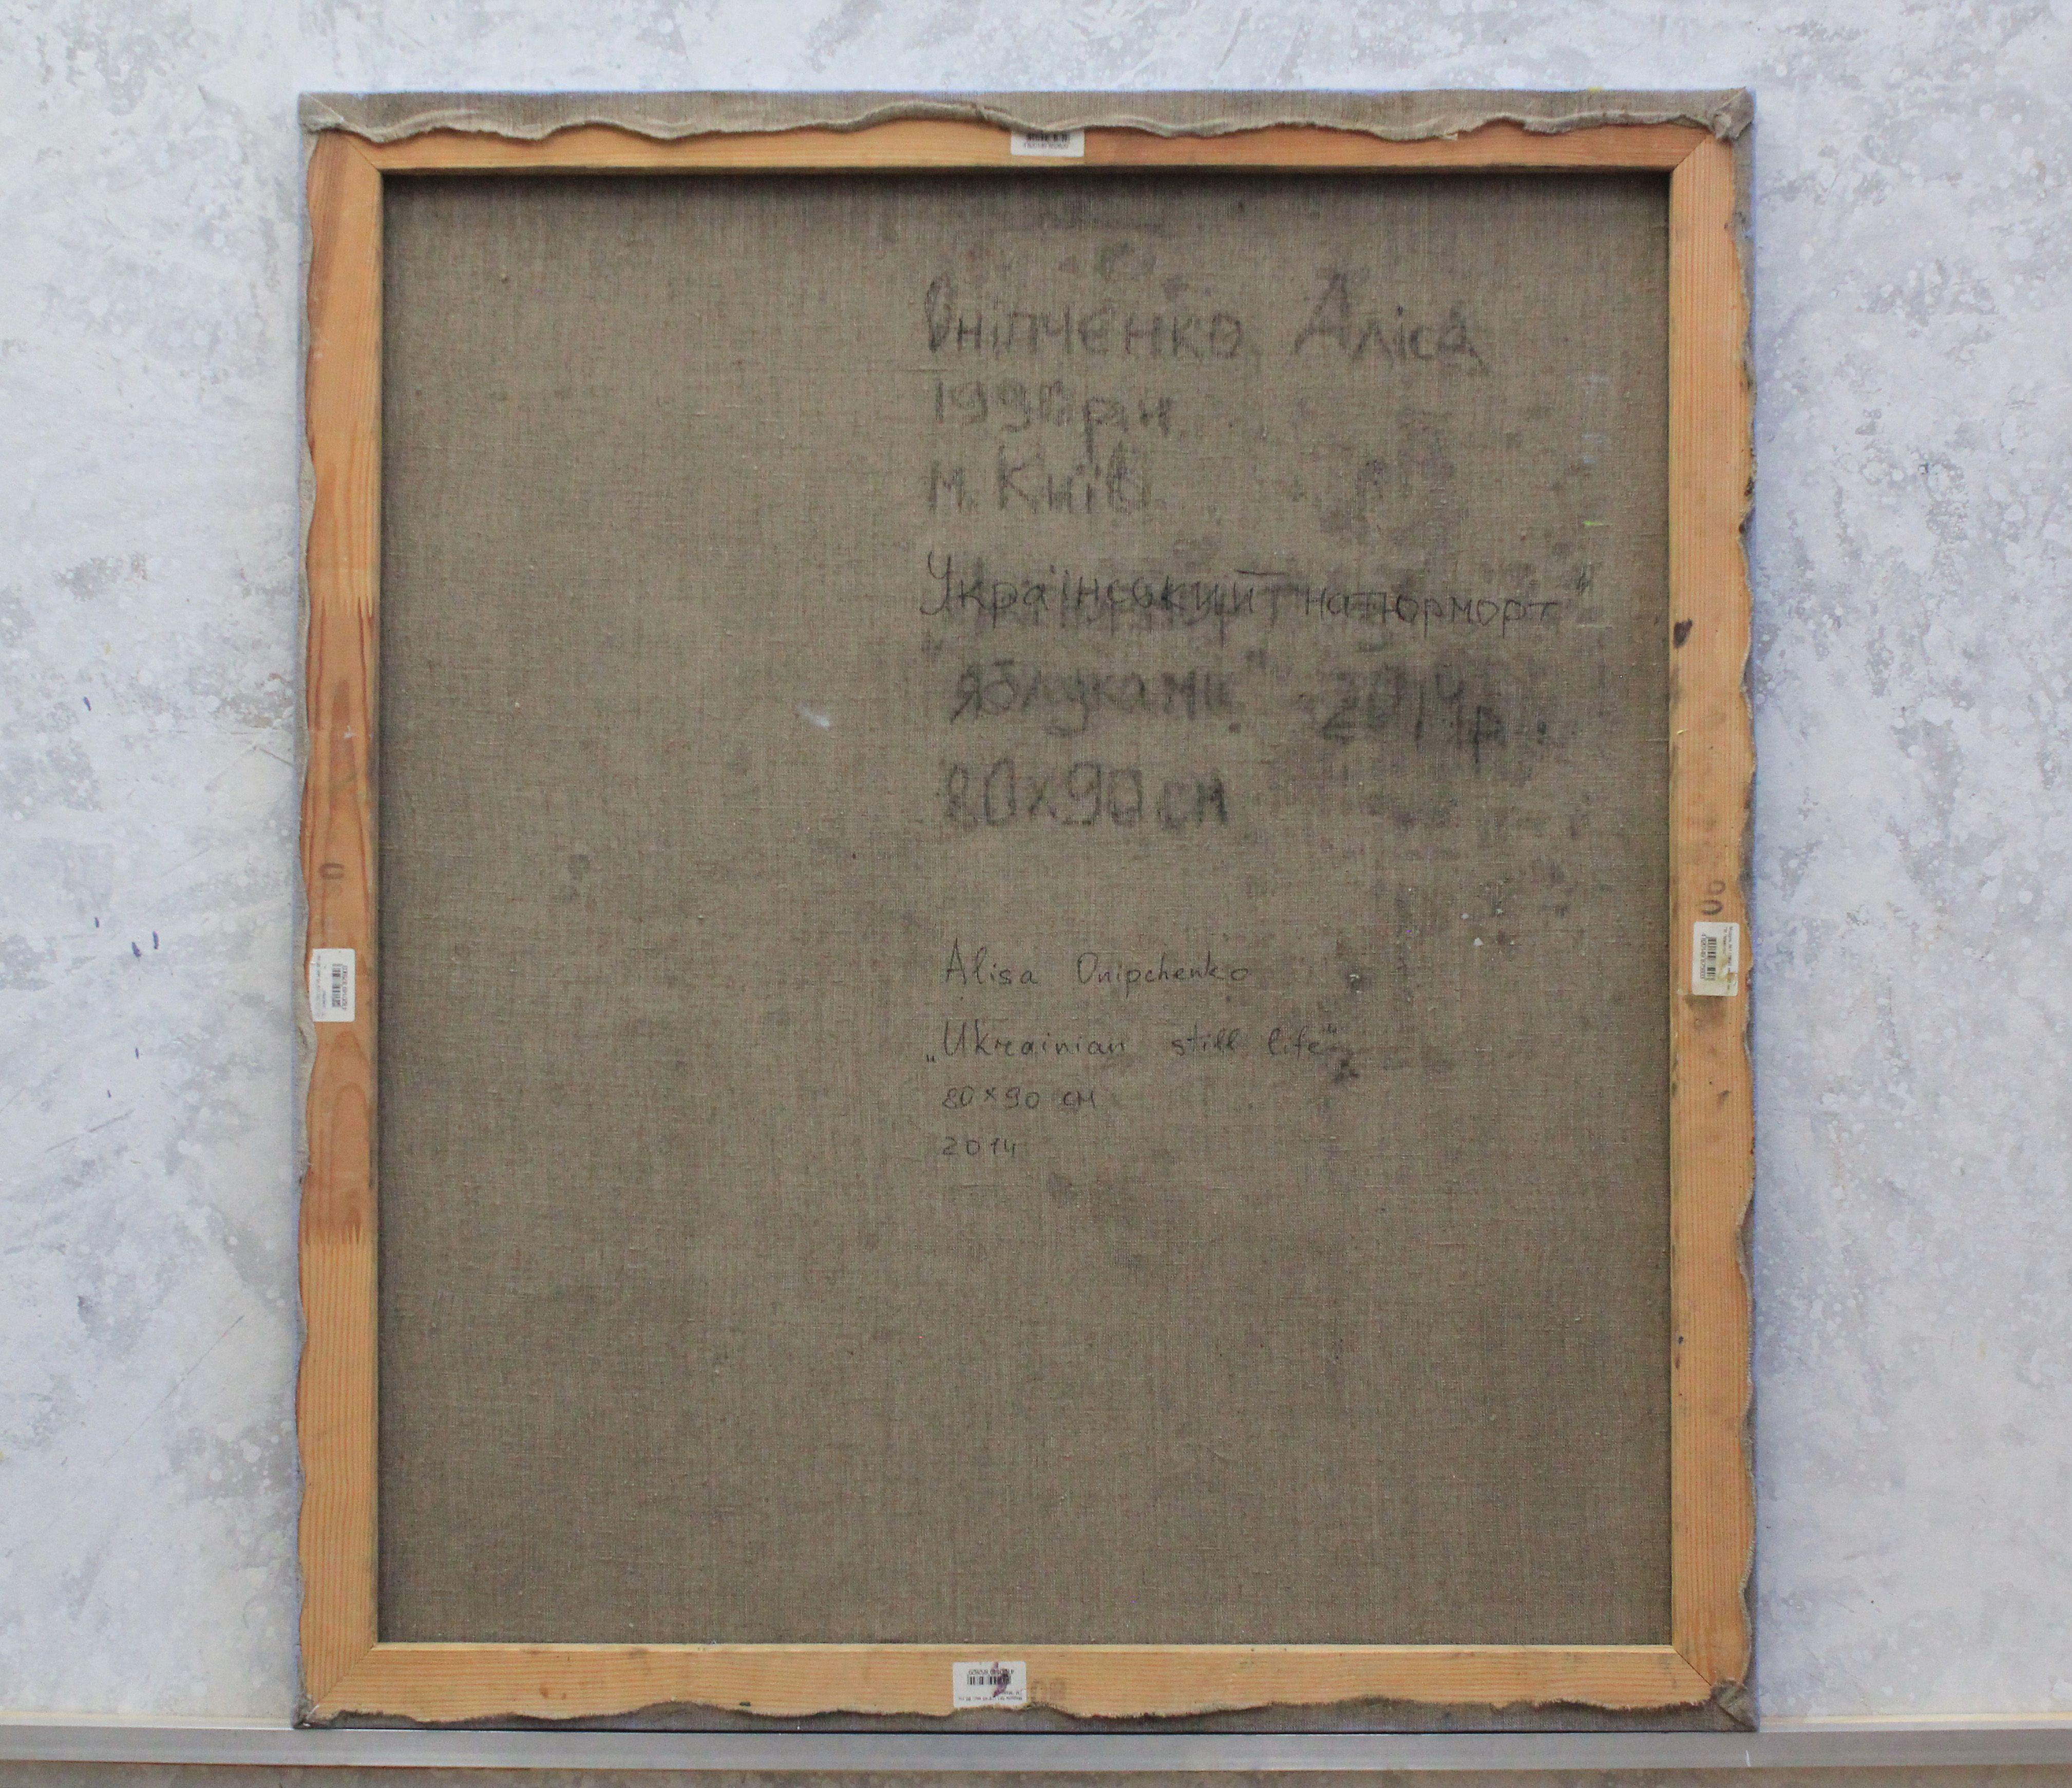 Оніпченко Аліса
1990 р.н
м. Київ
Український натюрморт"
яблуками" 2014р.
80х90 см
Alisa Onipchenko
„Ukrainian still life"
80×90 см
2014
90
80